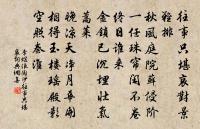 往事只堪哀對景
難排
秋風庭院蘚侵階
一任珠簾閒不卷
終日誰來
金鎖已沉埋壯氣
蒿萊
晚涼天淨月華開
想得玉樓瑤殿影
空照秦淮
李煜浪淘沙往事只堪
哀